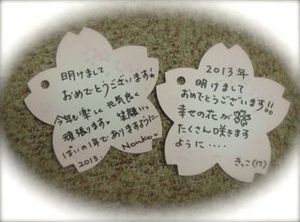 明けまして
おめでとうございます!
今年も楽しく元気良く
頑張ります。笑顔いっ
ぱいの1年でありますように
2013 Nonko
2013年
明けまして
おめでとうございます!!
幸せの花が
たくさん咲きます
ように・・・・
きっこ(17)